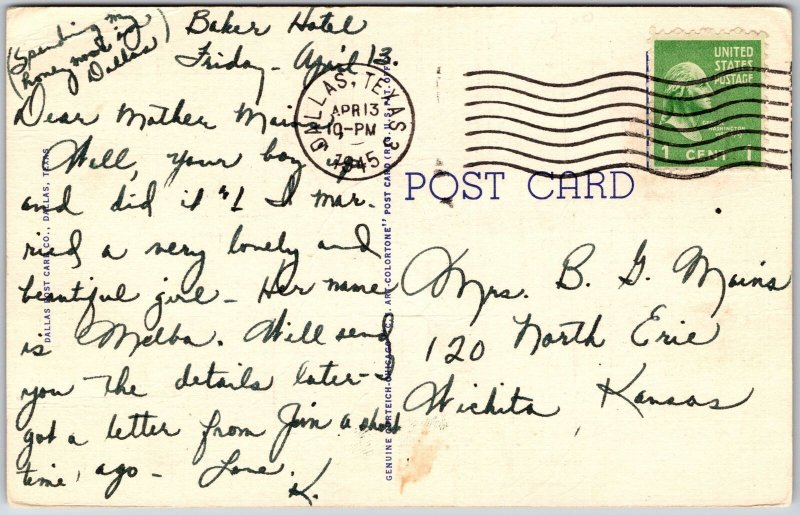 (Spending my
honeymoon in
Dallas)
Baker Hotel
Friday - April 13.
Dear Mother Mains,
Well, your boy up
and did it "! I mar-
ried a very lovely and
beautiful girl - Her name
is Melba. Will send
you the details later -
got a letter from Jim a short
time ago - Love.
K.
DALLAS POST CARD CO., DALLAS, TEXAS
GENUINE CURTEICH-CHICAGO "C.T. ART-COLORTONE" POST CARD (REG. U.S. PAT. OFF.)
DALLAS, TEXAS 3
APR 13
10-PM
1945
UNITED
STATES
POSTAGE
WASHINGTON
1 CENT 1
POST CARD
Mrs. B. G. Mains
120 North Erie
Wichita Kansas